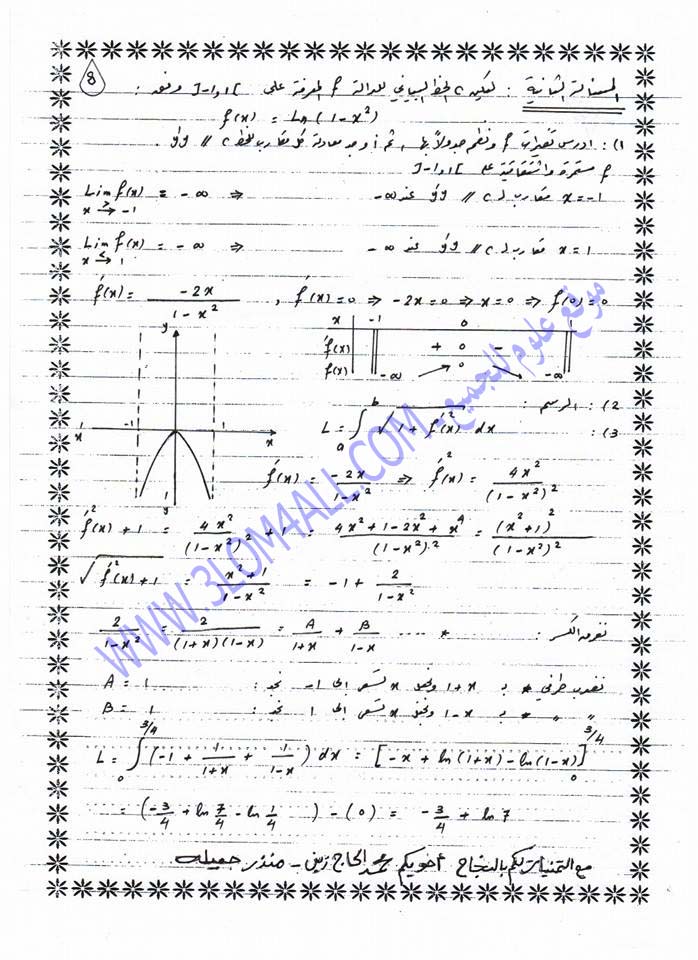 8
المسألة الثانية : ليكن C الخط البياني للدالة f المعرفة على ]-1,1[ وفق :
f(x) = Ln(1-x²)
1) : ادرس تغيرات f ونظم جدولاً بها ، ثم أوجد معادلة كل مقارب للخط C // yy' .
f مستمرة واشتقاقية على ]-1,1[
Lim f(x) = -∞ ⇒ x = -1 مقارب لـ C // yy' عند -∞
x →> -1
Lim f(x) = -∞ ⇒ x = 1 مقارب لـ C // yy' عند -∞
x →< 1
f'(x) = -2x / 1-x² , f'(x) = 0 ⇒ -2x = 0 ⇒ x = 0 ⇒ f(0) = 0
x -1 0 1
f'(x) + 0 -
f(x) -∞ 0 -∞
y
x' -1 1 x
y'
2) : الرسم :
3) : L = ∫ₐᵇ √(1 + f'²(x)) dx
f'(x) = -2x / 1-x² ⇒ f'²(x) = 4x² / (1-x²)²
f'²(x) + 1 = 4x² / (1-x²)² + 1 = 4x² + 1 - 2x² + x⁴ / (1-x²)² = (x²+1)² / (1-x²)²
√(f'²(x) + 1) = x²+1 / 1-x² = -1 + 2 / 1-x²
نفرق الكسر : * .... 2 / 1-x² = 2 / (1+x)(1-x) = A / 1+x + B / 1-x
نضرب طرفي * بـ 1+x ونجعل x تسعى إلى -1 نجد : A = 1
" " * بـ 1-x ونجعل x تسعى إلى 1 نجد : B = 1
L = ∫₀^3/4 (-1 + 1/1+x + 1/1-x) dx = [-x + ln(1+x) - ln(1-x)]₀^3/4
= (-3/4 + ln 7/4 - ln 1/4) - (0) = -3/4 + ln 7
مع التمنيات لكم بالنجاح أخويكم محمد الحاج زين - منذر جميله
موقع علوم للجميع - WWW.3LOM4ALL.COM